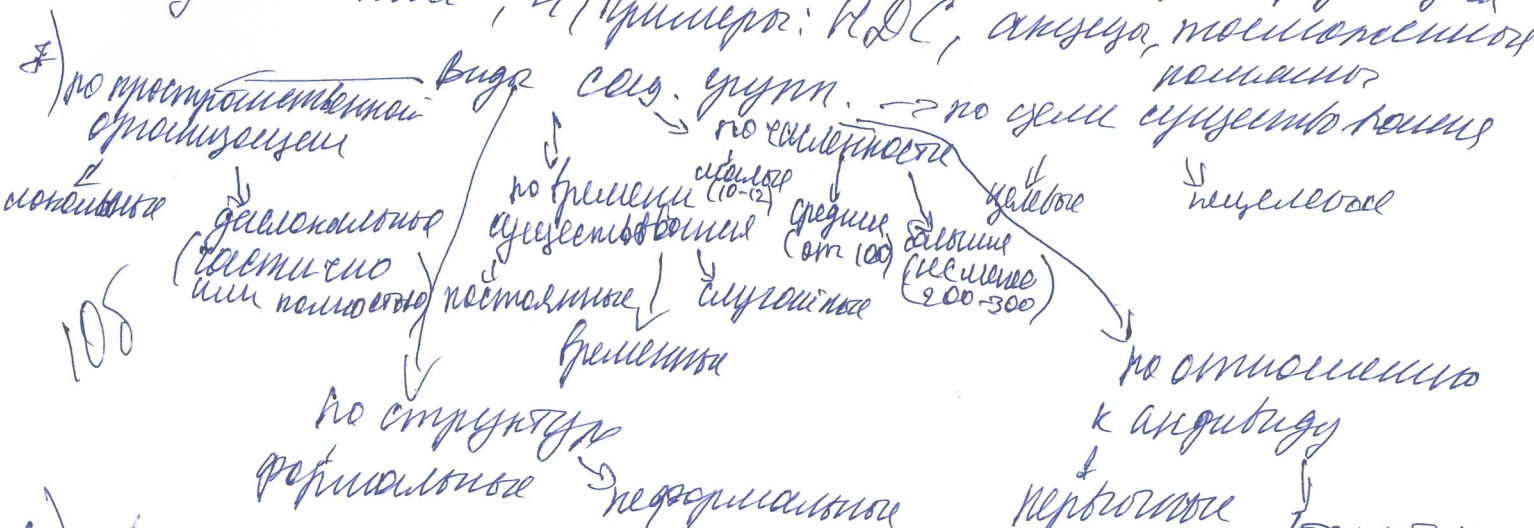 Примеры: НДС, акцизы, таможенные
пошлины
7) Виды соц. групп.
по пространственной
организации
локальные
дислокальные
(частично
или полностью)
по времени
существования
постоянные
временные
случайные
по численности
малые
(10-12)
средние
(от 100)
большие
(не менее
200-300)
по цели существования
целевые
нецелевые
10б
по структуре
формальные
неформальные
по отношению
к андивиду
первичные